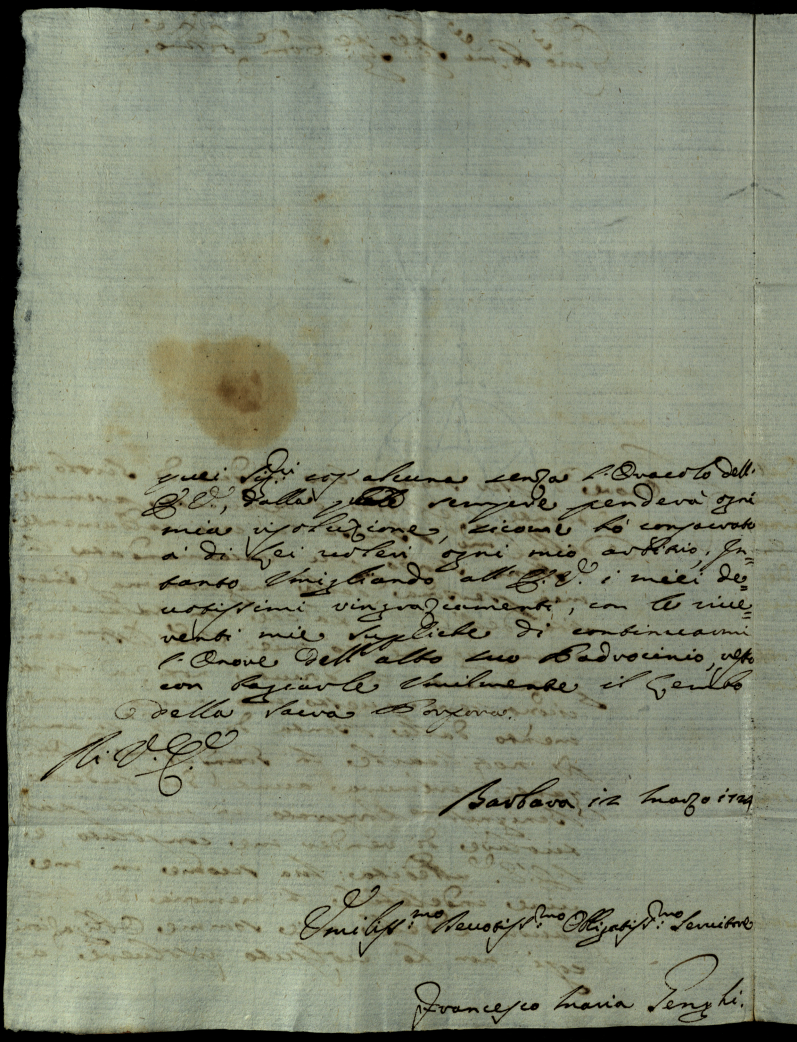 quei Sig.ri cosa alcuna senza l'Oracolo dell'
E.V., dalla quale sempre penderà ogni
mia risoluzione, sicome hò consacrato
a' di Lei voleri ogni mio arbitrio. In=
tanto Umigliando all'E.V. i miei de=
votissimi ringraziamenti, con le rive=
renti mie supliche di continuarmi
l'Onore dell'alto suo Padrocinio, resto
con bagiarle Umilmente il Lembo
della Sacra Porpora.
Di V.E.
Barbara, 12 Marzo 1724
Umiliss.mo Devotiss.mo Obligatiss.mo Servitore
Francesco Maria Penghi.